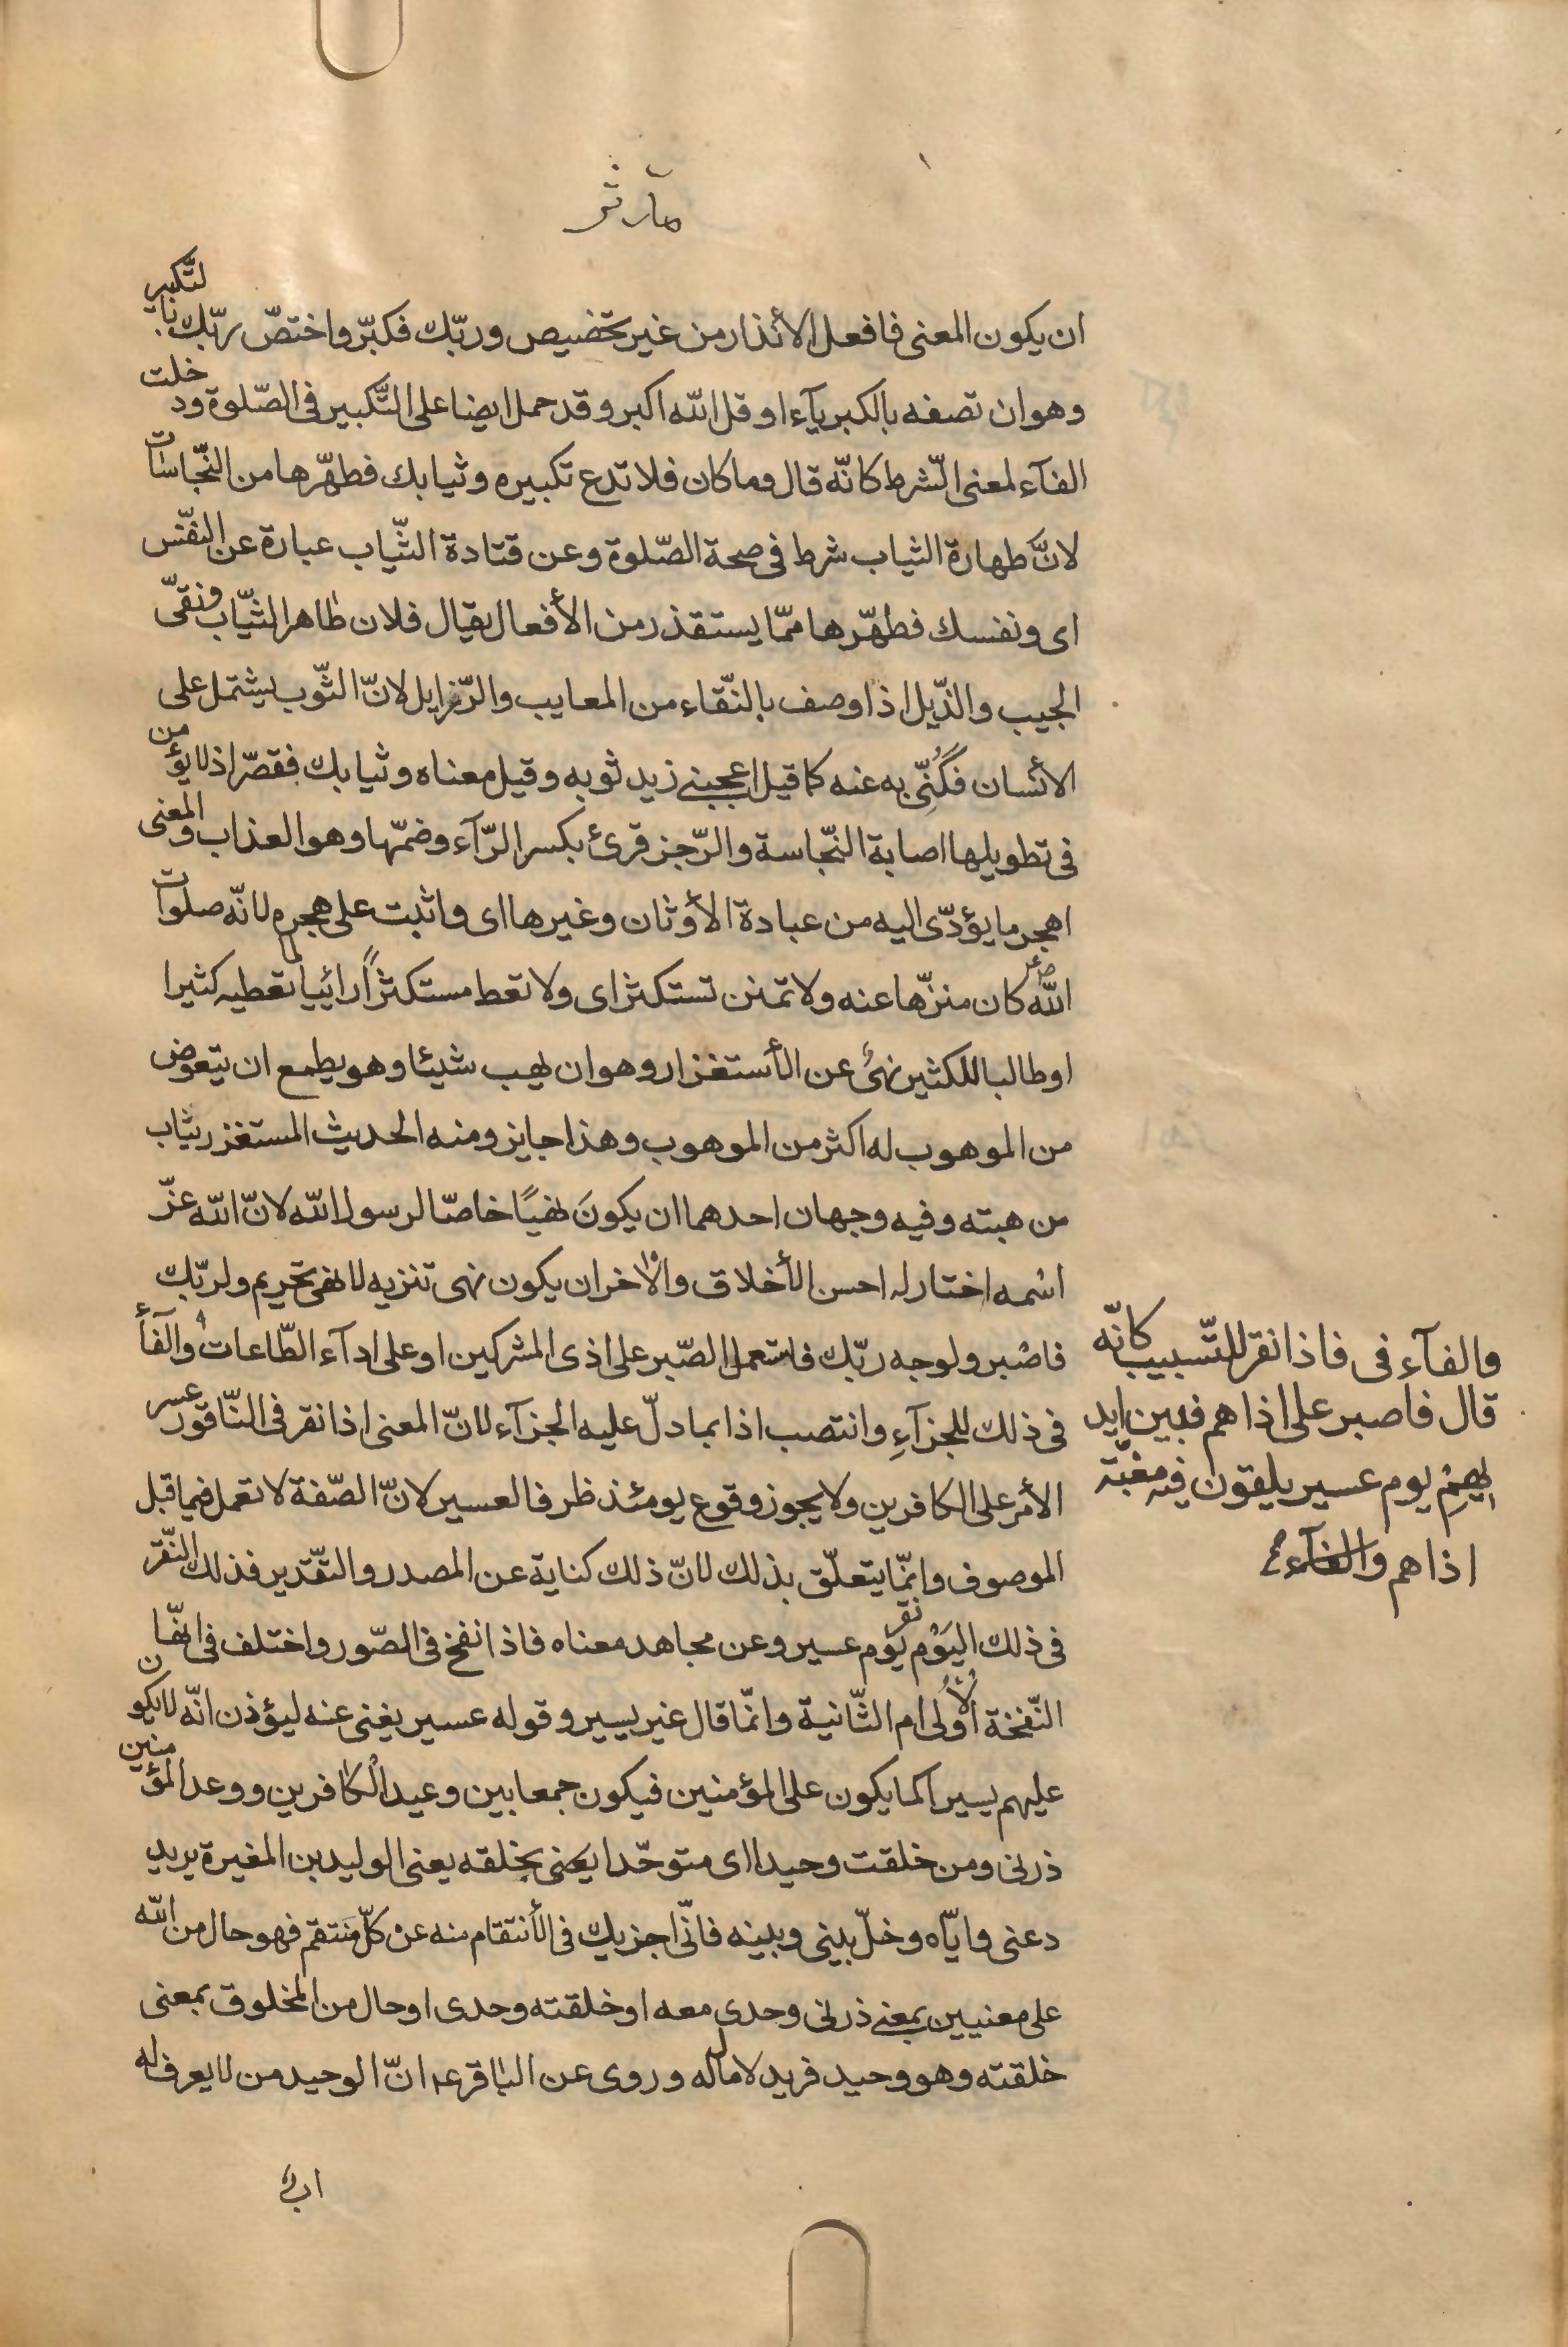 مدّثر
ان يكون المعنى فافعل الأنذار من غير تخصيص وربّك فكبّر واختصّ ربّك بالتّكبير
وهو ان تصفه بالكبريآء او قل الله اكبر وقد حمل ايضا على التّكبير فى الصّلوة ودخلت
الفآء لمعنى الشّرط كانّه قال وما كان فلا تدع تكبيره وثيابك فطهّرها من النّجاسات
لانّ طهارة الثياب شرط فى صحة الصّلوة وعن قتادة الثّياب عبارة عن النفّس
اى ونفسك فطهّرها ممّا يستقذر من الأفعال يقال فلان طاهر الثيّاب ونقىّ
الجيب والذّيل اذا وصف بالنّقاء من المعايب والرّزايل لانّ الثّوب يشتمل على
الأنسان فكُنِّى به عنه كما قيل اعجبنے زيد ثوبه وقيل معناه وثيابك فقصّر اذ لا يؤمن
فى تطويلها اصابة النّجاسة والرّجز قرئ بكسر الرّآء وضمّها وهو العذاب والمعنى
اهجر ما يؤدّى اليه من عبادة الأوثان وغيرها اى واثبت على هجره لانّه صلوات
الله كان منزّها عنه ولا تمنن تستكثر اى ولا تعط مستكثراً رائيا لما تعطيه كثيرا
او طالبا للكثير نهىٌ عن الأستغزار وهو ان يهب شيئا وهو يطمع ان يتعوض
من الموهوب له اكثر من الموهوب وهذا جايز ومنه الحديث المستغزر يثاب
من هبته وفيه وجهان احدهما ان يكونَ نهيًا خاصّا لرسول الله لانّ الله عزّ
اسْمه اختار له احسن الأخلاق والاخر ان يكون نهى تنزيه لا نهى تحريم ولربّك
فاصْبر ولوجه ربّك فاستعمل الصّبر على اذى المشركين او على ادآء الطّاعات والفآء
فى ذلك للجزآءِ وانتصب اذا بما دلّ عليه الجزآء لانّ المعنى اذا نقر فى النّاقور عسر
الأمر على الكافرين ولا يجوز وقوع يومئذ ظرفا لعسير لانّ الصّفة لا تعمل فيما قبل
الموصوف وانّما يتعلّق بذلك لانّ ذلك كناية عن المصدر والتقّدير فذلك النقّر
فى ذلك اليَوْم نقر يَوْم عسير وعن مجاهد معناه فاذا نفخ فى الصّور واختلف فى انّها
النّفخة الأولى ام الثّانية وانّما قال غير يسير وقوله عسير يغنى عنه ليؤذن انّه لا يكون
عليهم يسيرا كما يكون على المؤمنين فيكون جمعا بين وعيد الكافرين ووعد المؤمنين
ذرنى ومن خلقت وحيدا اى متوحّدا يعنى بخلقه يعنى الوليد بن المغيرة يريد
دعنى وايّاه وخلّ بينى وبينه فانّى اجزيك فى الأنتقام منه عن كلّ منتقم فهو حال من الله
على معنيين بمعنے ذرنى وحدى معه او خلقته وحدى او حال من المخلوق بمعنى
خلقته وهو وحيد فريد لا مال له وروى عن الباقر ع انّ الوحيد من لا يعرف له
اب
والفآء فى فاذا نقر للتّسبيب كانّه
قال فاصبر على اذاهم فبين ايد
يهِمْ يوم عسير يلقون فيه مغبّة
اذاهم والفآء